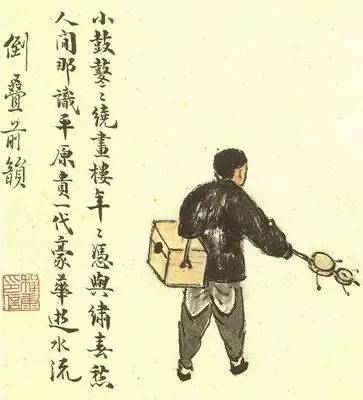 小鼓鼕〻繞畫樓年〻憑與繡春愁
人間那識平原貴一代豪華逝水流
倒疊前韻